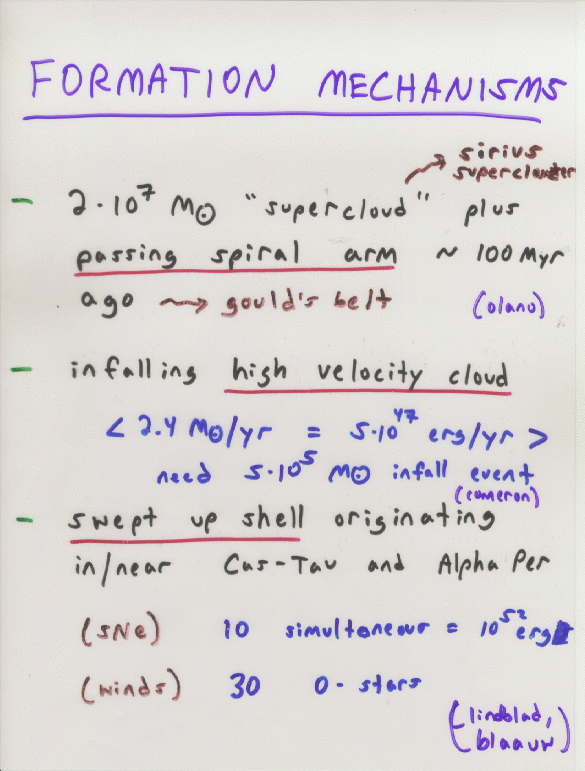 FORMATION MECHANISMS
sirius
supercluster
- 2·10⁷ M⊙ "supercloud" plus
passing spiral arm ~ 100 Myr
ago → gould's belt (olano)
- infalling high velocity cloud
< 2.4 M⊙/yr = 5·10⁴⁷ erg/yr >
need 5·10⁵ M⊙ infall event
(comeron)
- swept up shell originating
in/near Cas-Tau and Alpha Per
(SNe) 10 simultaneous = 10⁵² erg
(winds) 30 O-stars
(lindblad,
blaauw)